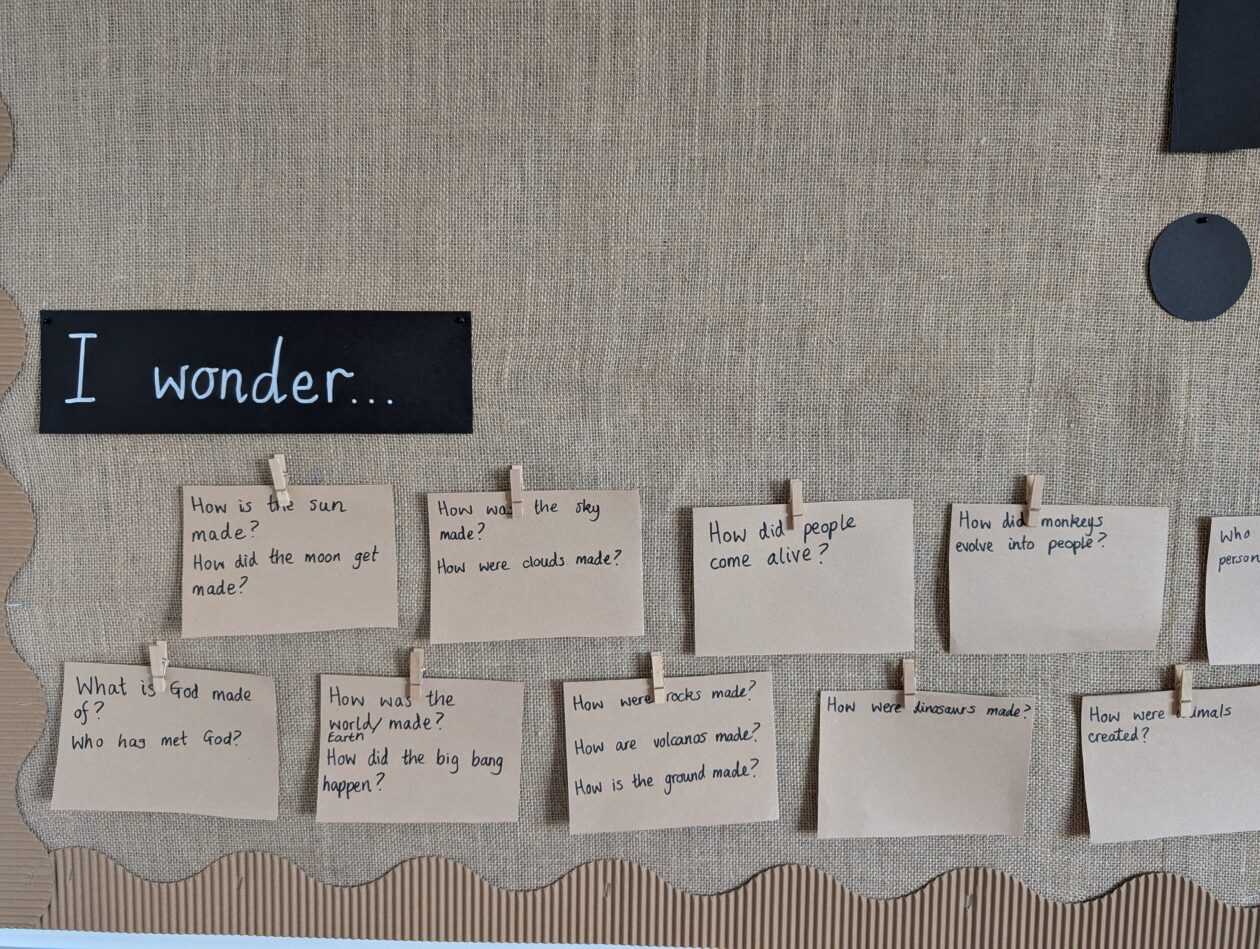 I wonder...
How is the sun
made?
How did the moon get
made?
How was the sky
made?
How were clouds made?
How did people
come alive?
How did monkeys
evolve into people?
Who
person
What is God made
of?
Who has met God?
How was the
world/ made?
Earth
How did the big bang
happen?
How were rocks made?
How are volcanos made?
How is the ground made?
How were dinosaurs made?
How were animals
created?